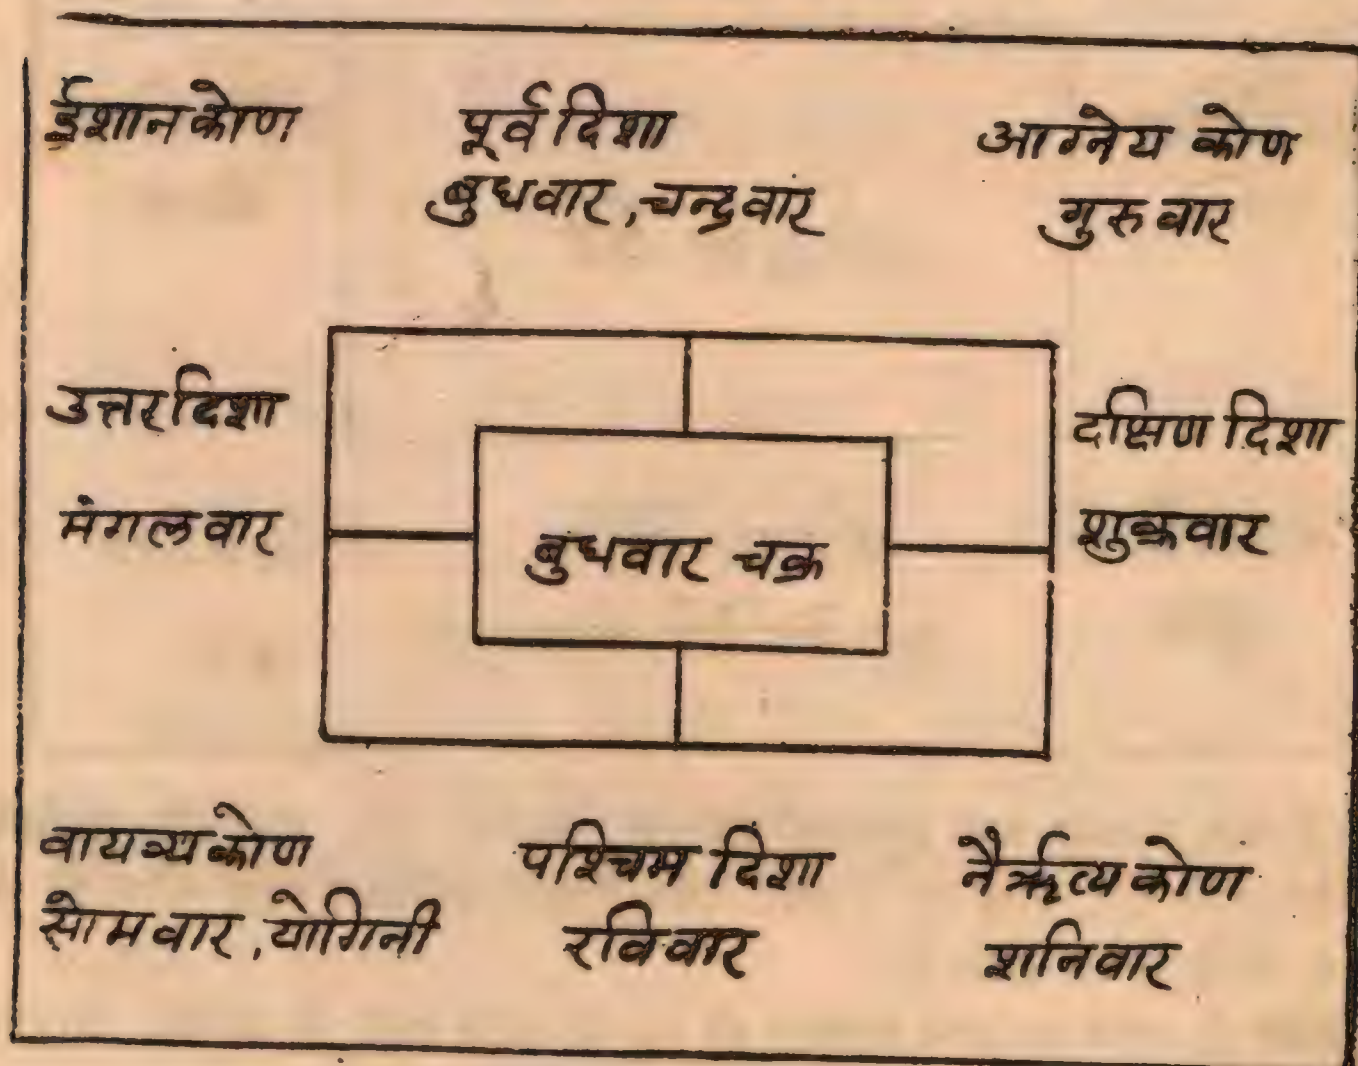 ईशान कोण
पूर्व दिशा
बुधवार, चन्द्रवार
आग्नेय कोण
गुरुवार
उत्तर दिशा
मंगलवार
बुधवार चक्र
दक्षिण दिशा
शुक्रवार
वायव्य कोण
सोमवार, योगिनी
पश्चिम दिशा
रविवार
नैर्ऋत्य कोण
शनिवार